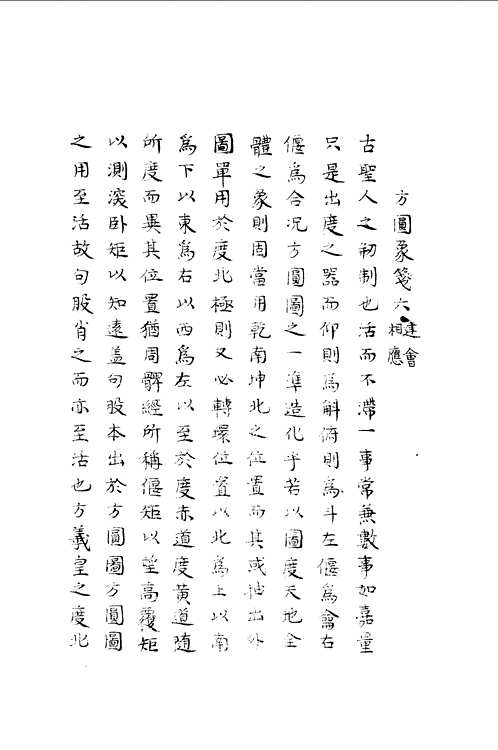 方圓象箋六建會相應
古聖人之初制也活而不滯一事常兼數事如嘉量
只是出度之器而仰則爲斛俯則爲斗左偃爲龠右
偃爲合況方圓圖之一準造化乎若以圖度天地全
體之象則固當用乾南坤北之位置而其或抽出外
圖單用於度北極則又必轉環位置以北爲上以南
爲下以東爲右以西爲左以至於度赤道度黃道隨
所度而異其位置猶周髀經所稱偃矩以望高覆矩
以測深卧矩以知遠盖句股本出於方圓圖方圓圖
之用至活故句股肖之而亦至活也方羲皇之度北